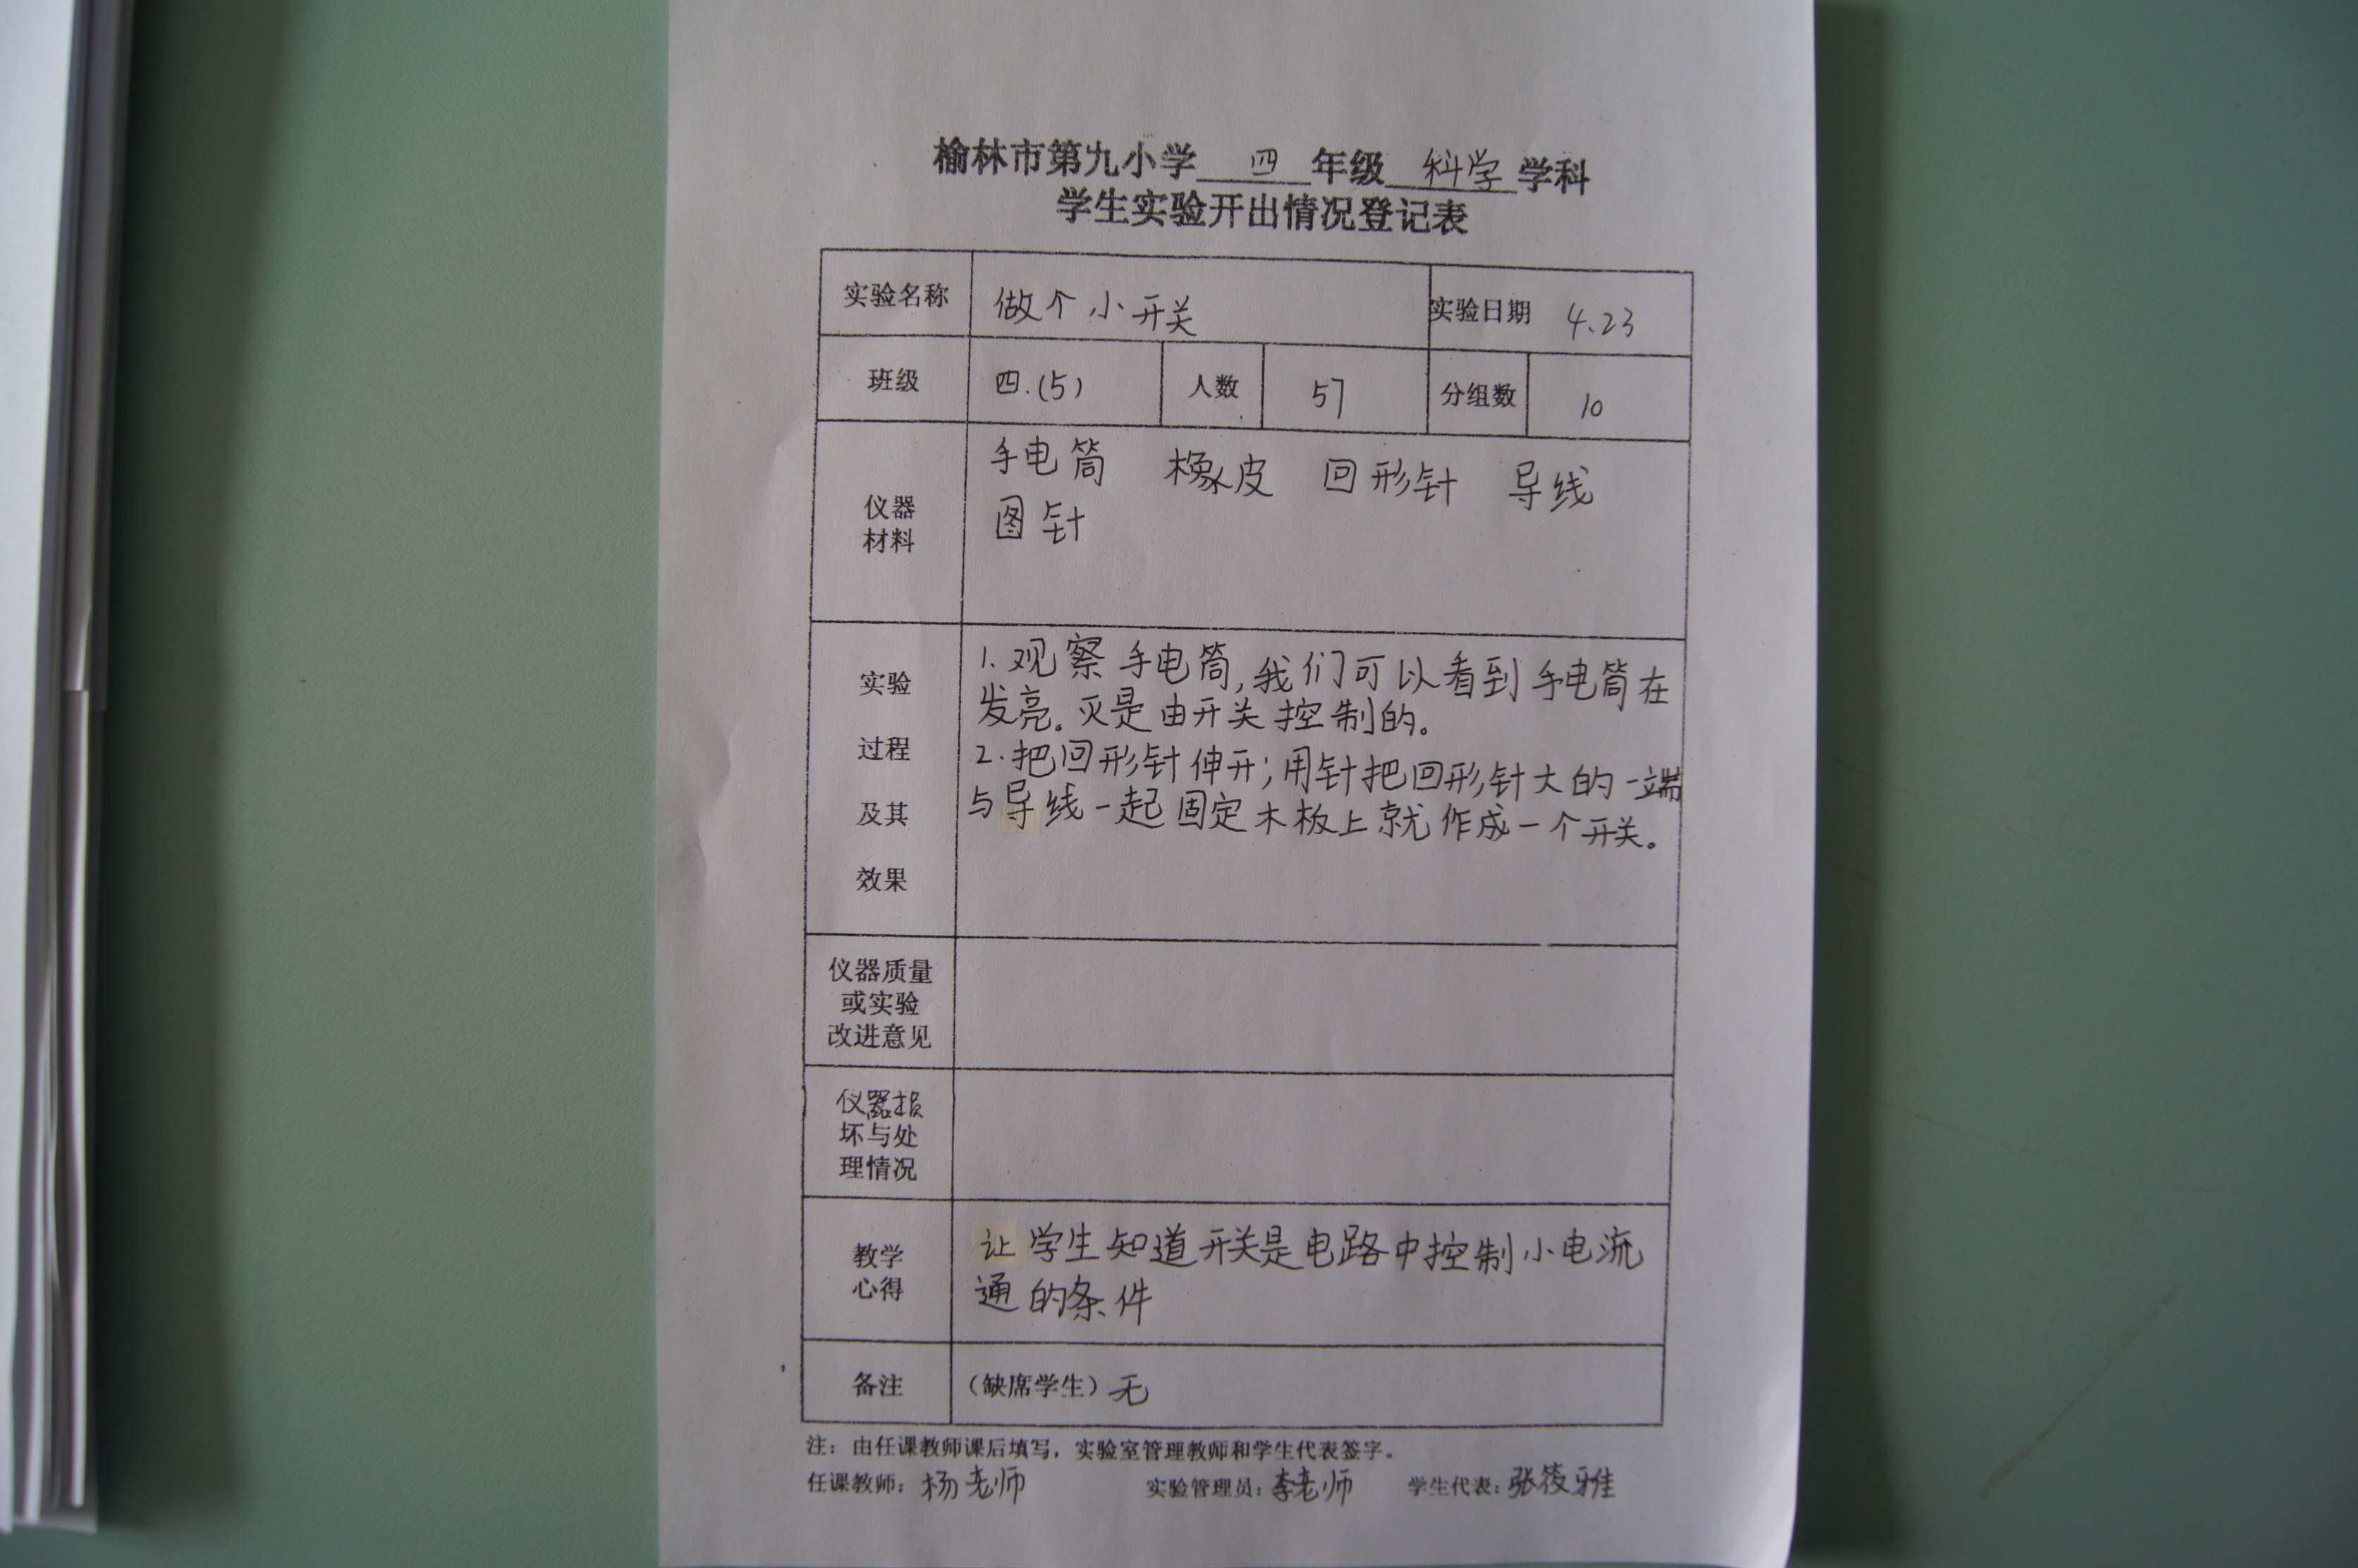 榆林市第九小学 四 年级 科学 学科
学生实验开出情况登记表
实验名称 做个小开关 实验日期 4.23
班级 四.(5) 人数 57 分组数 10
仪器
材料
手电筒 橡皮 回形针 导线
图针
实验
过程
及其
效果
1.观察手电筒,我们可以看到手电筒在
发亮。灭是由开关控制的。
2.把回形针伸开;用针把回形针大的一端
与导线一起固定木板上就作成一个开关。
仪器质量
或实验
改进意见
仪器损
坏与处
理情况
教学
心得
让学生知道开关是电路中控制小电流
通的条件
备注 (缺席学生) 无
注:由任课教师课后填写,实验室管理教师和学生代表签字。
任课教师:杨老师 实验管理员:李老师 学生代表:张筱雅